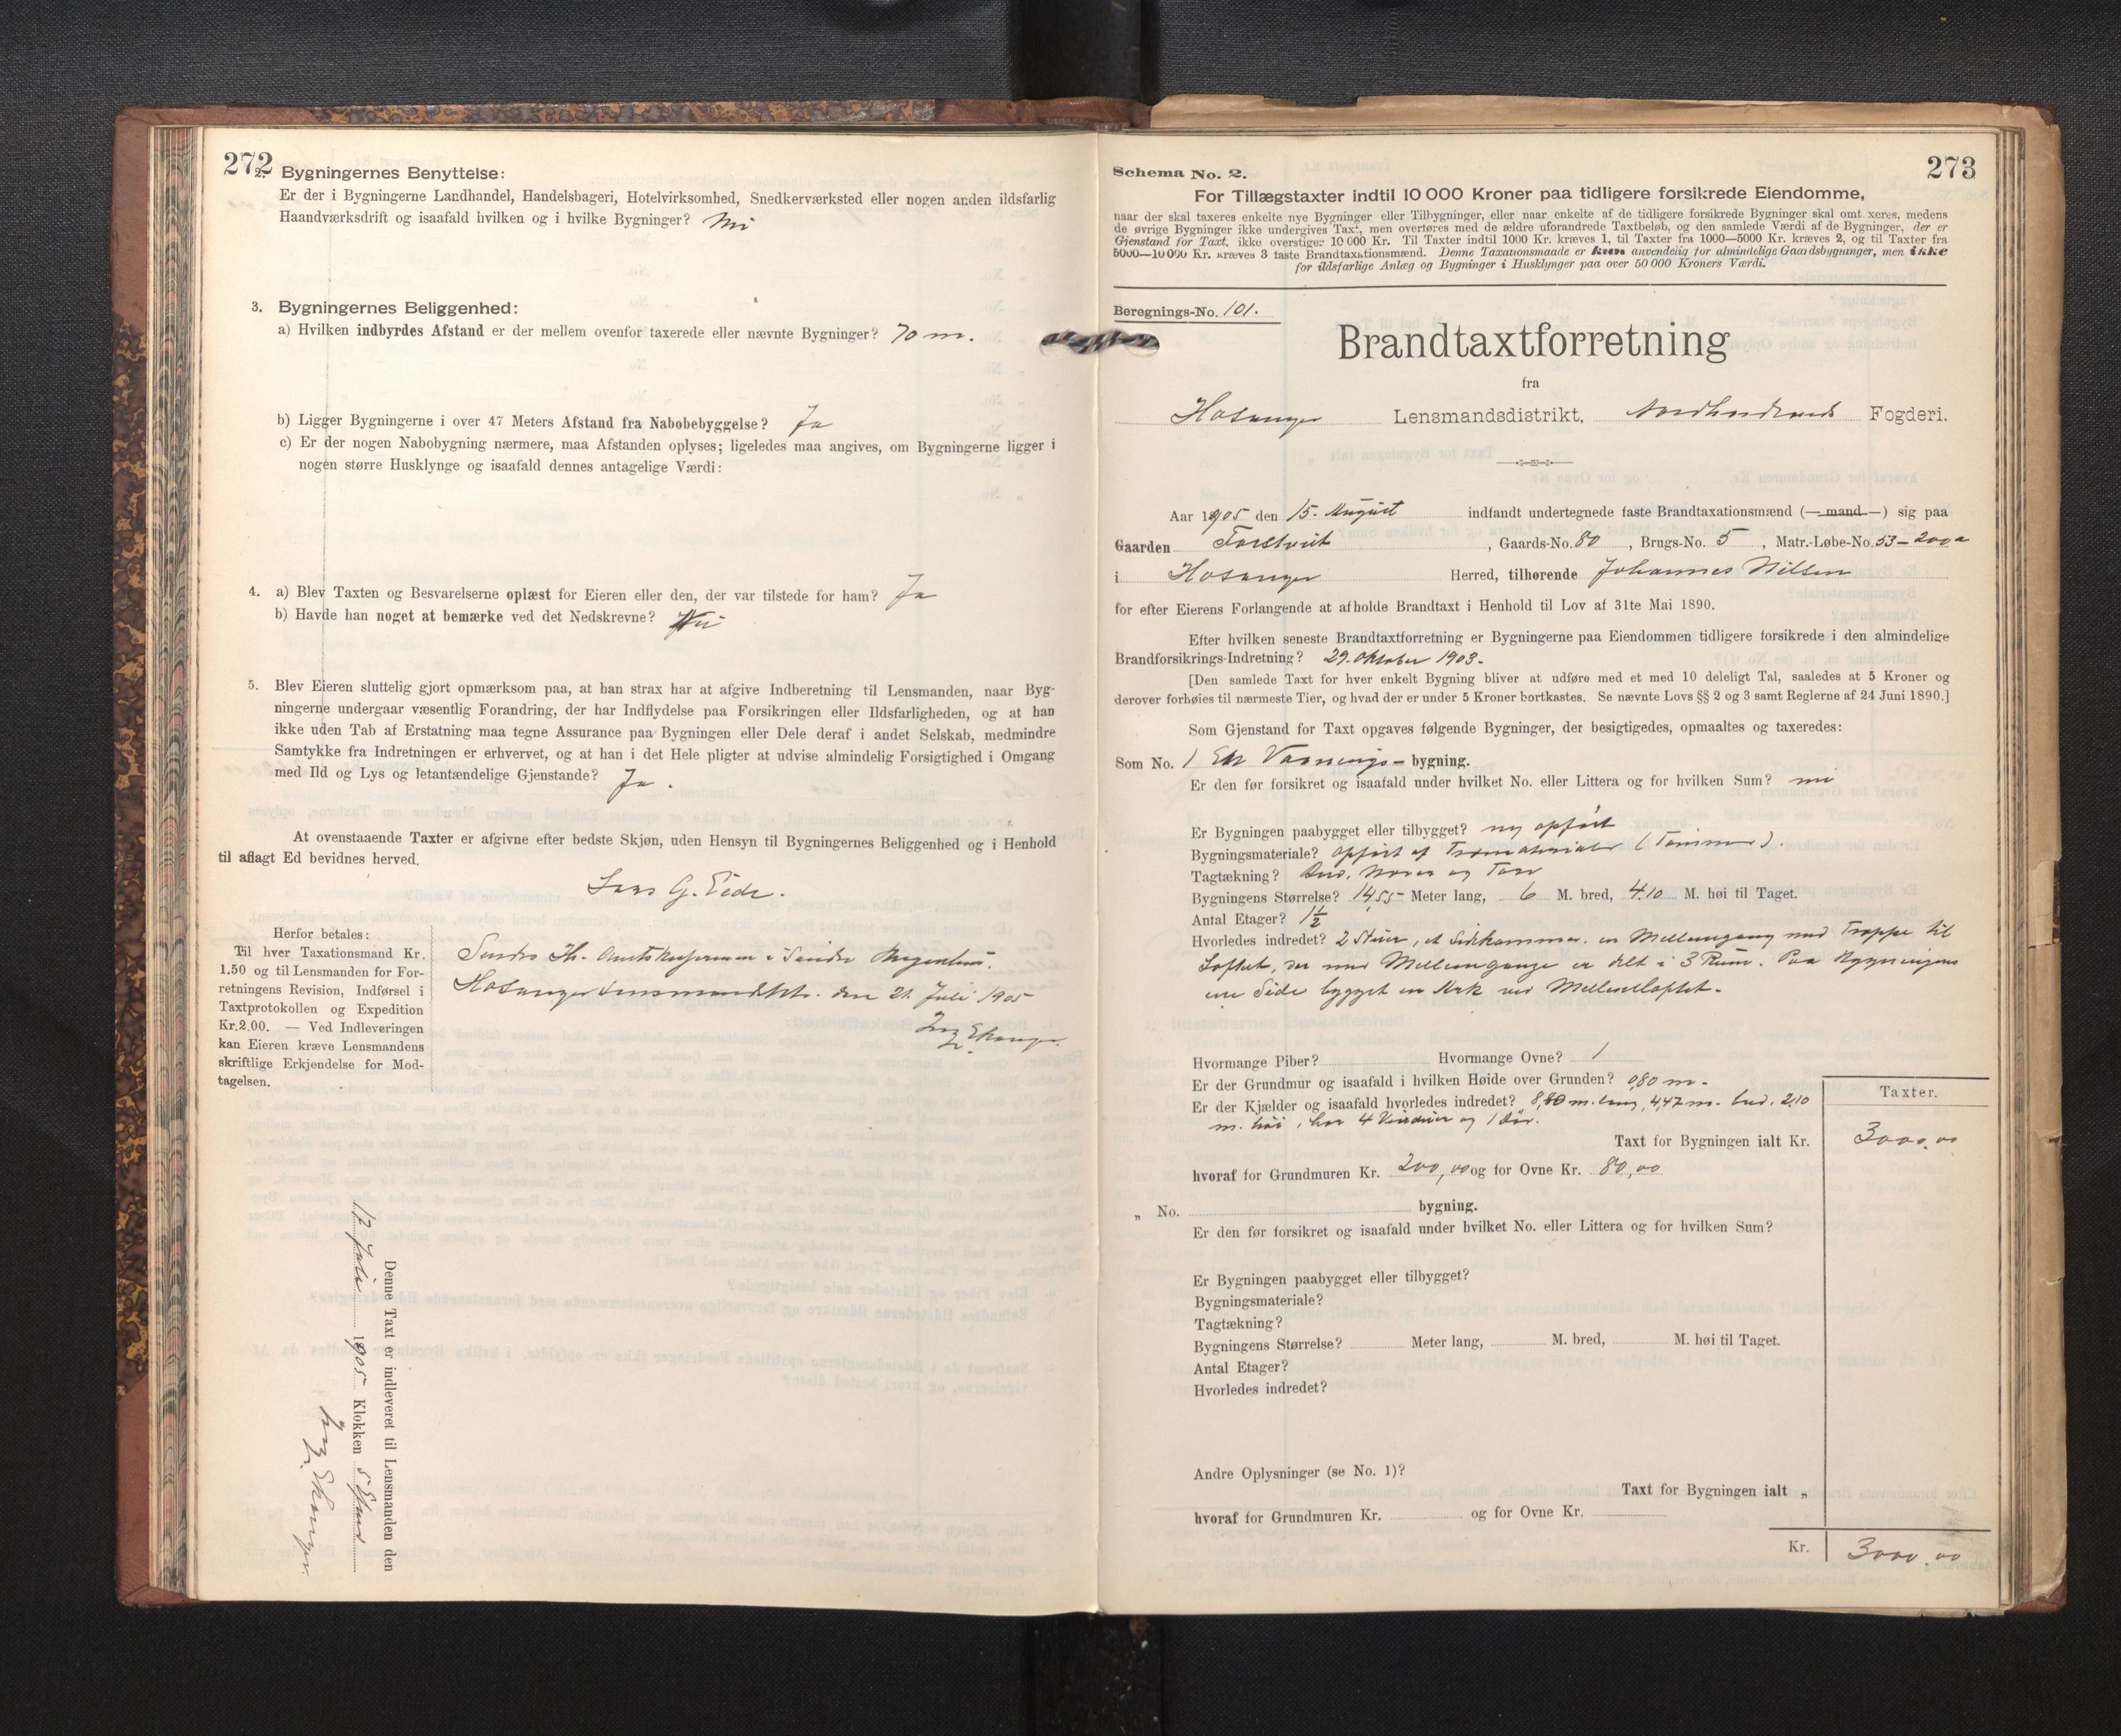 272
2. Bygningernes Benyttelse:
Er der i Bygningerne Landhandel, Handelsbageri, Hotelvirksomhed, Snedkerværksted eller nogen anden ildsfarlig
Haandværksdrift og isaafald hvilken og i hvilke Bygninger? Nei
3. Bygningernes Beliggenhed:
a) Hvilken indbyrdes Afstand er der mellem ovenfor taxerede eller nævnte Bygninger? 70 m.
b) Ligger Bygningerne i over 47 Meters Afstand fra Nabobebyggelse? Ja
c) Er der nogen Nabobygning nærmere, maa Afstanden oplyses; ligeledes maa angives, om Bygningerne ligger i
nogen større Husklynge og isaafald dennes antagelige Værdi:
4. a) Blev Taxten og Besvarelserne oplæst for Eieren eller den, der var tilstede for ham? Ja
b) Havde han noget at bemærke ved det Nedskrevne? Nei
5. Blev Eieren sluttelig gjort opmærksom paa, at han strax har at afgive Indberetning til Lensmanden, naar Byg-
ningerne undergaar væsentlig Forandring, der har Indflydelse paa Forsikringen eller Ildsfarligheden, og at han
ikke uden Tab af Erstatning maa tegne Assurance paa Bygningen eller Dele deraf i andet Selskab, medmindre
Samtykke fra Indretningen er erhvervet, og at han i det Hele pligter at udvise almindelig Forsigtighed i Omgang
med Ild og Lys og letantændelige Gjenstande? Ja.
At ovenstaaende Taxter er afgivne efter bedste Skjøn, uden Hensyn til Bygningernes Beliggenhed og i Henhold
til aflagt Ed bevidnes herved.
Lars G. Eide.
Herfor betales:
Til hver Taxationsmand Kr.
1.50 og til Lensmanden for For-
retningens Revision, Indførsel i
Taxtprotokollen og Expedition
Kr.2.00. — Ved Indleveringen
kan Eieren kræve Lensmandens
skriftlige Erkjendelse for Mod-
tagelsen.
Sendes Hr. i Søndre
Hosanger den 21. Juli 1905
Ekanger
Denne Taxt er indleveret til Lensmanden den
17 Juli 1905 Klokken 5 Eftmd
Ekanger
273
Schema No. 2.
For Tillægstaxter indtil 10 000 Kroner paa tidligere forsikrede Eiendomme,
naar der skal taxeres enkelte nye Bygninger eller Tilbygninger, eller naar enkelte af de tidligere forsikrede Bygninger skal omt xeres, medens
de øvrige Bygninger ikke undergives Taxt, men overføres med de ældre uforandrede Taxtbeløb, og den samlede Værdi af de Bygninger, der er
Gjenstand for Taxt, ikke overstiger 10 000 Kr. Til Taxter indtil 1000 Kr. kræves 1, til Taxter fra 1000—5000 Kr. kræves 2, og til Taxter fra
5000—10 000 Kr. kræves 3 faste Brandtaxationsmænd. Denne Taxationsmaade er kun anvendelig for almindelige Gaardsbygninger, men ikke
for ildsfarlige Anlæg og Bygninger i Husklynger paa over 50 000 Kroners Værdi.
Beregnings-No. 101.
Brandtaxtforretning
fra
Hosanger Lensmandsdistrikt, Nordhordlands Fogderi.
Aar 1905 den 15. August indfandt undertegnede faste Brandtaxationsmænd (—mand—) sig paa
Gaarden , Gaards-No. 80, Brugs-No. 5, Matr.-Løbe-No. 53 - 200 a
i Hosanger Herred, tilhørende Johannes Nilsen
for efter Eierens Forlangende at afholde Brandtaxt i Henhold til Lov af 31te Mai 1890.
Efter hvilken seneste Brandtaxtforretning er Bygningerne paa Eiendommen tidligere forsikrede i den almindelige
Brandforsikrings-Indretning? 29. Oktober 1903.
[Den samlede Taxt for hver enkelt Bygning bliver at udføre med et med 10 deleligt Tal, saaledes at 5 Kroner og
derover forhøies til nærmeste Tier, og hvad der er under 5 Kroner bortkastes. Se nævnte Lovs §§ 2 og 3 samt Reglerne af 24 Juni 1890.]
Som Gjenstand for Taxt opgaves følgende Bygninger, der besigtigedes, opmaaltes og taxeredes:
Som No. 1 En Vaanings-bygning.
Er den før forsikret og isaafald under hvilket No. eller Littera og for hvilken Sum? nei
Er Bygningen paabygget eller tilbygget? ny opført
Bygningsmateriale? opført af Træmaterialer (Tømmer).
Tagtækning? Bord, Næver og Torv
Bygningens Størrelse? 14,55 Meter lang, 6 M. bred, 4,10 M. høi til Taget.
Antal Etager? 1½
Hvorledes indredet? 2 Stuer, et Sidekammer, en Mellemgang med Trappe til
Loftet, der med Mellemgange er delt i 3 Rum. Paa Bygningens
ene Side bygget en Ark ved
Hvormange Piber? Hvormange Ovne? 1
Er der Grundmur og isaafald i hvilken Høide over Grunden? 0,80 m.
Er der Kjælder og isaafald hvorledes indredet? 8,80 m. lang, 4,47 m. bred, 2,10
m. høi, har 4 Vinduer og 1 Dør.
Taxter.
Taxt for Bygningen ialt Kr. 3000,00
hvoraf for Grundmuren Kr. 200,00 og for Ovne Kr. 80,00
„ No. bygning.
Er den før forsikret og isaafald under hvilket No. eller Littera og for hvilken Sum?
Er Bygningen paabygget eller tilbygget?
Bygningsmateriale?
Tagtækning?
Bygningens Størrelse? Meter lang, M. bred, M. høi til Taget.
Antal Etager?
Hvorledes indredet?
Andre Oplysninger (se No. 1)?
Taxt for Bygningen ialt „
hvoraf for Grundmuren Kr. og for Ovne Kr.
Kr. 3000,00